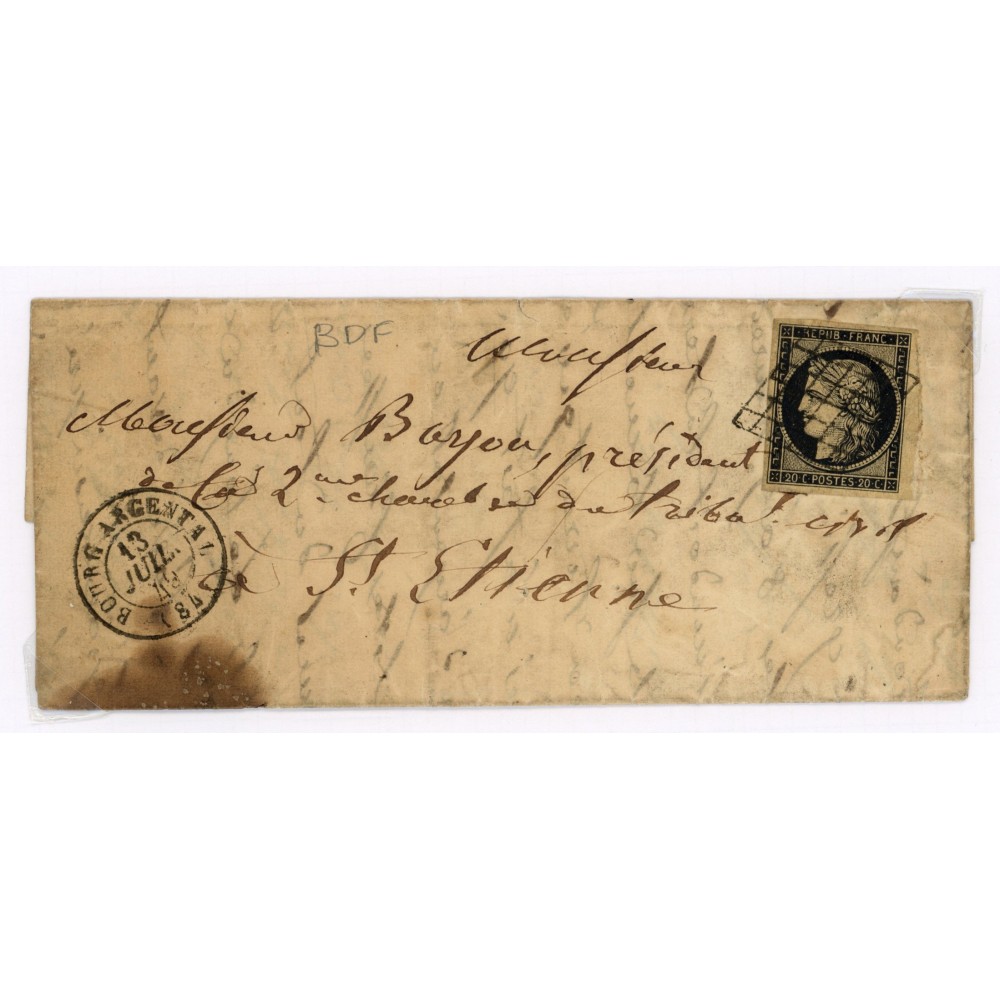 BDF
REPUB · FRANC ·
20 C · POSTES · 20 C ·
Monsieur
Monsieur Boyou, président
de la 2me chambre du tribal. civil
à St. Etienne
BOURG-ARGENTAL (84)
13
JUIL.
49